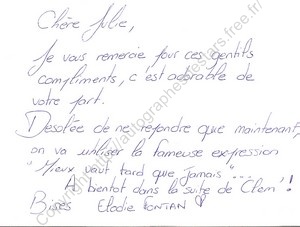 Chère Julie,
Je vous remercie pour ces gentils
compliments, c'est adorable de
votre part.
Desolée de ne repondre que maintenant,
on va utiliser la fameuse expression
"Mieux vaut tard que jamais"...
A bientot dans la suite de Clem !!
Bises Elodie FONTAN
Copyright http://autographesdestars.free.fr/